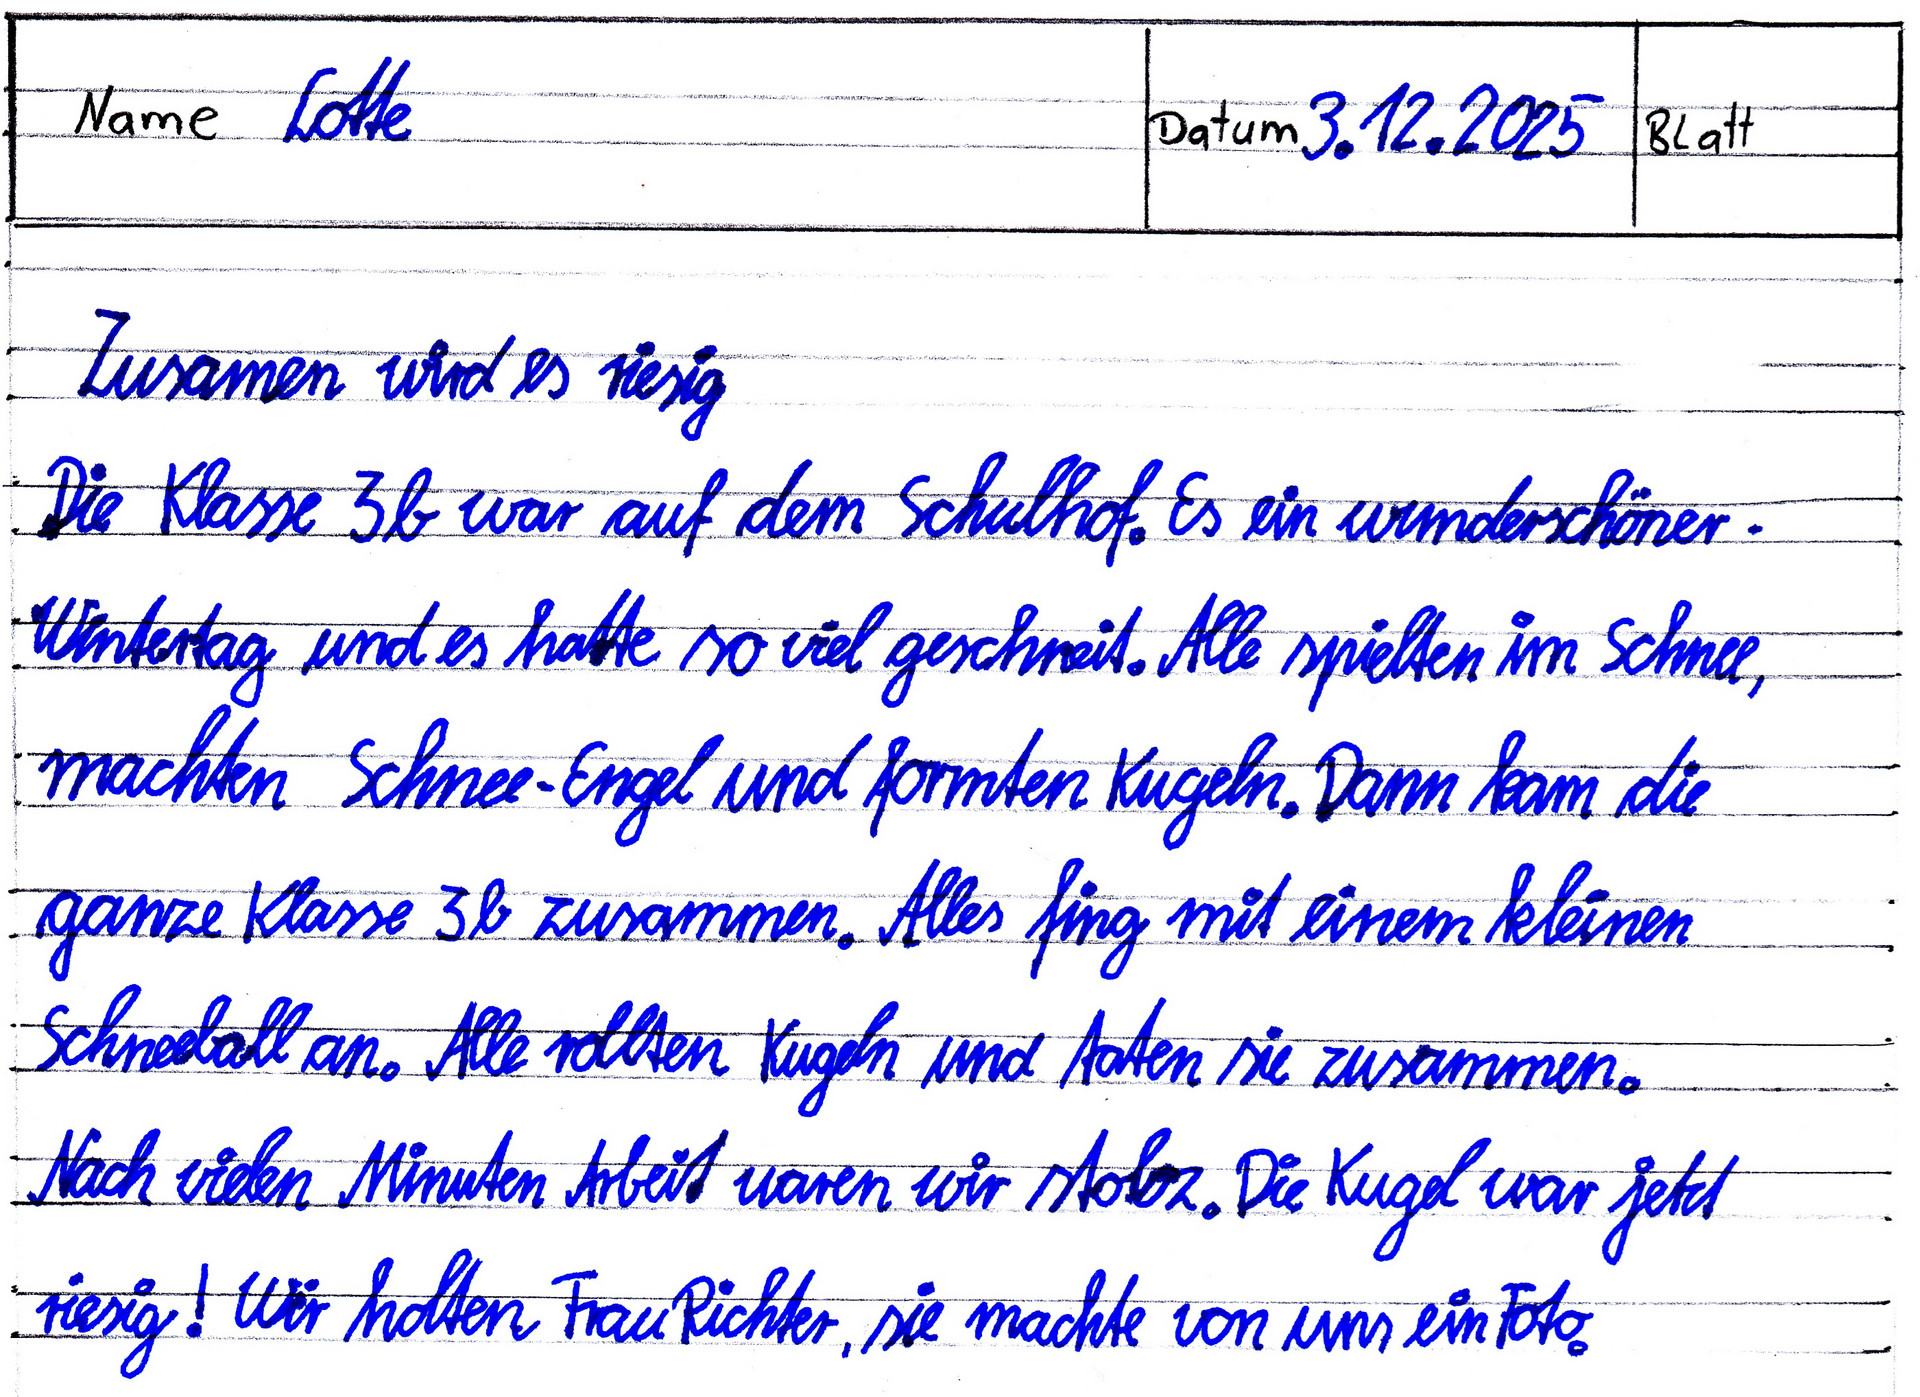 Name Lotte Datum 3.12.2025 Blatt
Zusamen wird es riesig
Die Klasse 3b war auf dem Schulhof. Es ein wunderschöner.
Wintertag und es hatte so viel geschneit. Alle spielten im Schnee,
machten Schnee-Engel und formten Kugeln. Dann kam die
ganze Klasse 3b zusammen. Alles fing mit einem kleinen
Schneeball an. Alle rollten Kugeln und taten sie zusammen.
Nach vielen Minuten Arbeit waren wir stolz. Die Kugel war jetzt
riesig! Wir holten Frau Richter, sie machte von uns ein Foto.